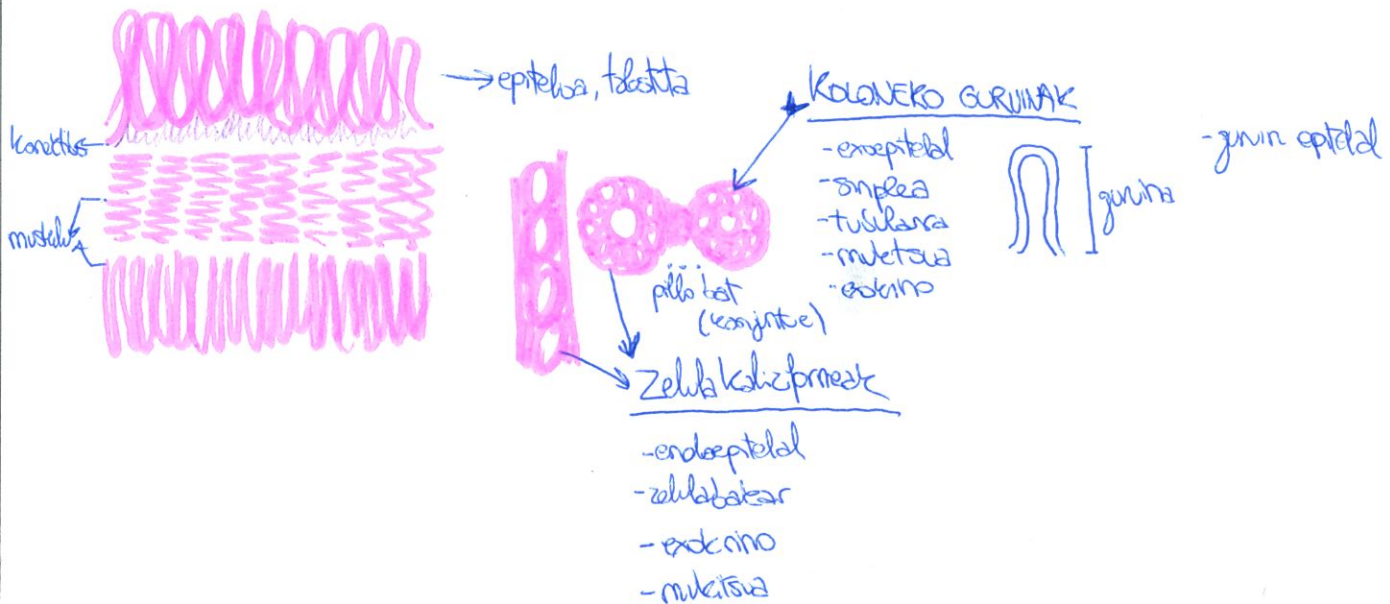 → epitelioa, tolostuta
konektibo
muskulua
KOLONEKO GURUINAK
- exoepitelial
- sinplea
- tubularra
- muketsua
- exokrino
guruina
- guruin epitelial
pillo bat
(konjuntue)
Zelula kaliziformeak
- endoepitelial
- zelulabakar
- exokrino
- mukitsua